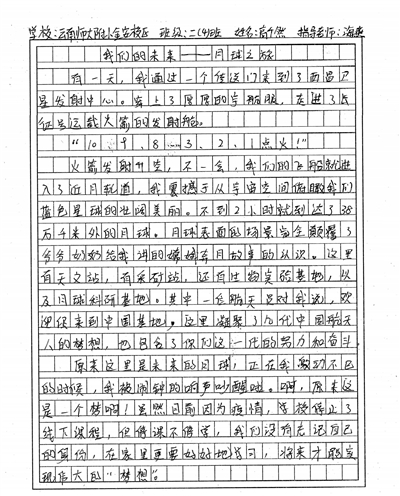 学校:云南师大附小金安校区 班级:二(4)班 姓名: 指导老师:海燕
我们的未来——月球之旅
有一天,我通过一个传送门来到了西昌卫
星发射中心。穿上了厚厚的宇航服,在进了长
征号运载火箭的发射舱。
“10、9、8……3、2、1点火!”
火箭发射升空,不一会,我们的飞船就进
入了近月轨道,我震撼于从宇宙空间俯瞰我们
蓝色星球的壮阔美丽。不到2小时就到达了38
万千米外的月球。月球表面的场景完全颠覆了
爷爷奶奶给我讲的嫦娥奔月故事的认识。这里
有天文站,有采矿站,还有生物实验基地,以
及月球科研基地。其中一位航天员对我说,欢
迎你来到中国基地。这里凝聚了几代中国航天
人的梦想,也包含了你们这一代的努力和奋斗。
原来这里是未来的月球,正在我激动不已
的时候,我被闹钟的响声叫醒啦。啊,原来这
是一个梦啊!虽然目前因为疫情,学校停止了
线下课程,但停课不停学,我们没有忘记自己
的身份,在家里更要好好地学习,将来才能实
现伟大的“梦想”。